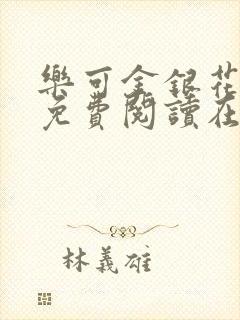 樂可金銀花
免費閱讀在
林義雄